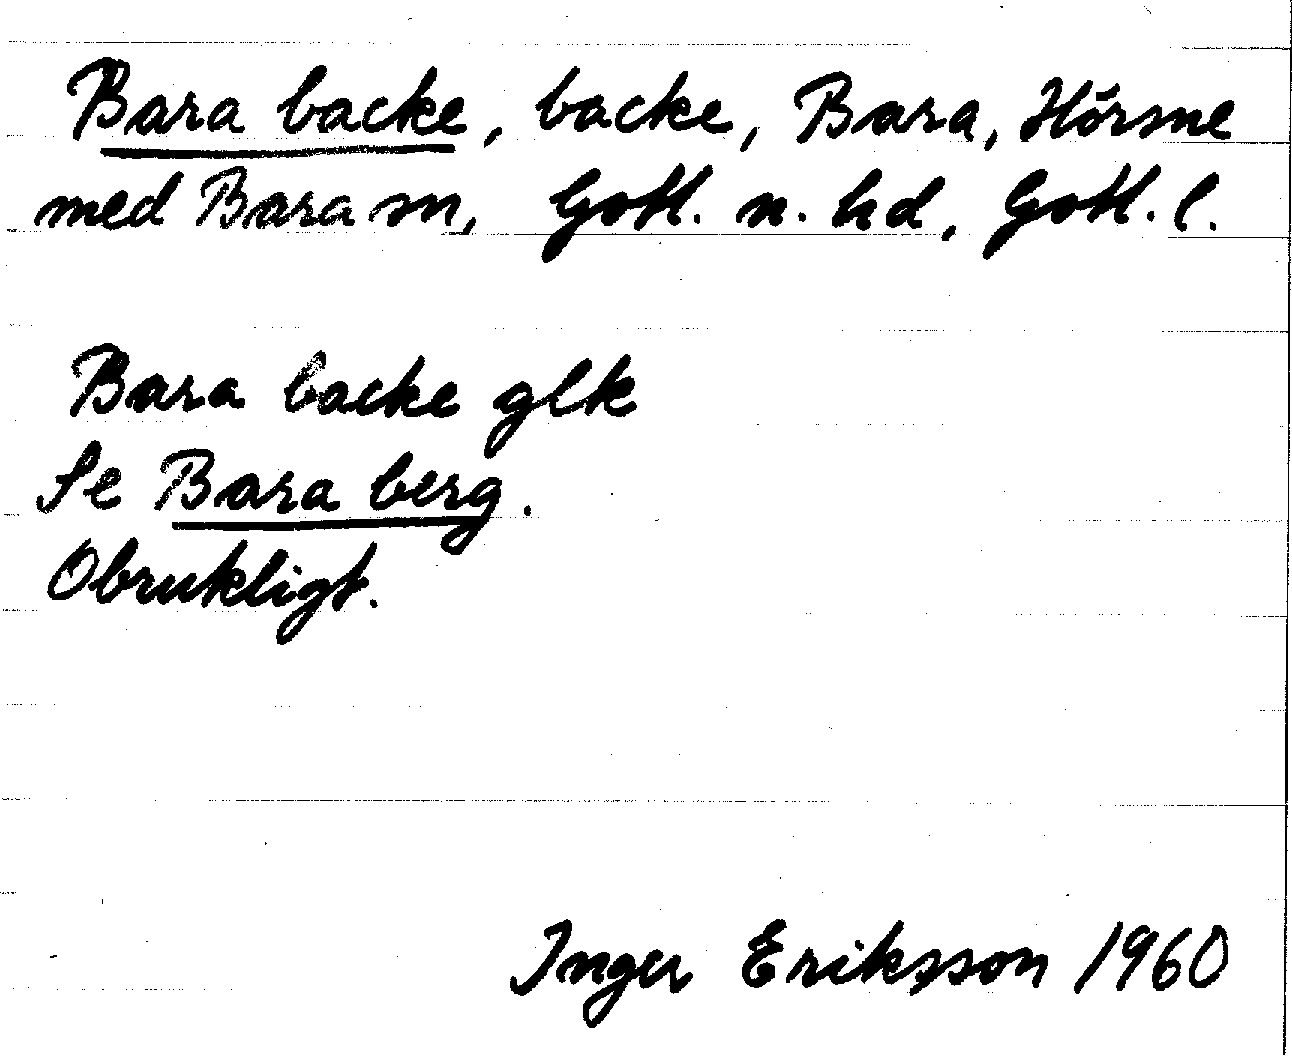 Bara backe, backe, Bara, Hörsne
med Bara sn, Gotl. n. hd, Gotl. l.
Bara backe glk
Se Bara berg.
Obrukligt.
Inger Eriksson 1960